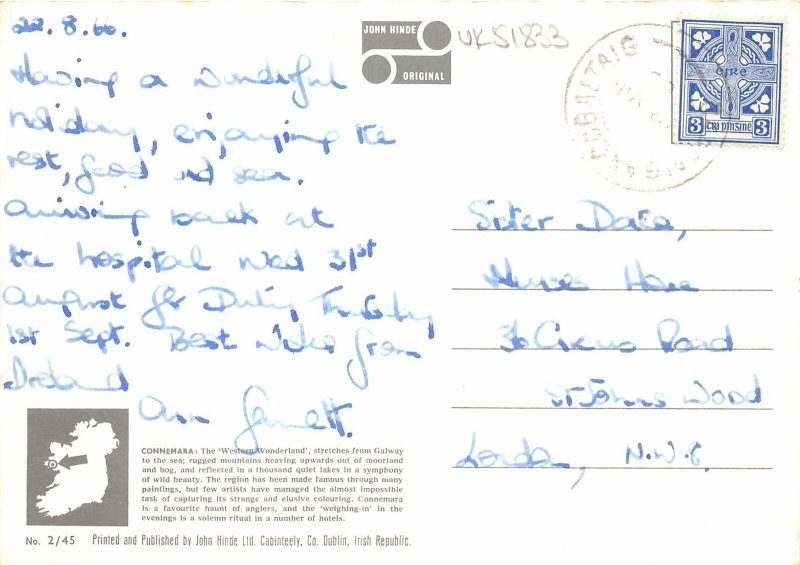 22.8.66.
Having a wonderful
holiday, enjoying the
rest, food and sea.
Arriving back at
the hospital Wed 31st
August for Duty Thursday
1st Sept. Best wishes from
Ireland
Ann
CONNEMARA: The 'Western Wonderland', stretches from Galway
to the sea; rugged mountains heaving upwards out of moorland
and bog, and reflected in a thousand quiet lakes in a symphony
of wild beauty. The region has been made famous through many
paintings, but few artists have managed the almost impossible
task of capturing its strange and elusive colouring. Connemara
is a favourite haunt of anglers, and the 'weighing-in' in the
evenings is a solemn ritual in a number of hotels.
No. 2/45 Printed and Published by John Hinde Ltd. Cabinteely, Co. Dublin, Irish Republic.
JOHN HINDE
ORIGINAL
UKS1833
EIRE
3 TRI PINGINE 3
Sister
Nurses Home
36 Circus Road
St Johns Wood
London, N.W.8.